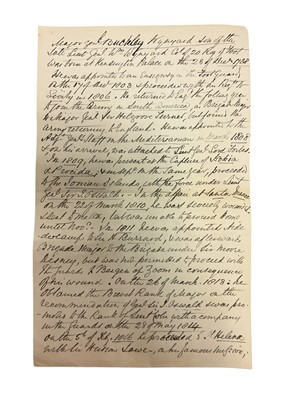 Major Genl Wynyard son of the
late Lieut Genl Wm Wynyard Col of 20 Reg of Foot
was born at Kensington Palace on the 28 of Decr
He was appointed to an Ensigncy in the Foot Guards
on the 17th Decr 1803 & proceeded with his Regt to
Sicily in 1806. He returned to England the following year
to join the Army in South America as Brigade Major
to Major Genl
the army returning to England. He was appointed to the
Adjt Genl Staff in the Mediterranean in 1808
On his arrival, was attached to Lieut Genl Lord Forbes
In 1809, he was present at the Capture of Ischia
& Procida, & in Sept. in the same year, proceeded
to the Ionian Islands, with the force under Lieut
Genl Sir J. Oswald. In the affair of Santa Maura
on the 22d of March 1810, he was severely wounded
& sent to Malta, but was unable to proceed home
until Novr. In 1811 he was appointed Aide
de camp to Sir H. Burrard, & was afterwards
Brigade Major to the Brigade under Sir Moore
Disney, but was not permitted to proceed with
it to Bergen of Zoom in consequence
of his wound. On the 26 of March 1813 he
obtained the Brevet Rank of Major on the
recommendation of Genl Sir J. Oswald & was pro
moted to the Rank of Lieut Col with a company
in the Guards on the 28 of May 1814
on the 5 of 1816 he proceeded to St Helena
with Sir Hudson Lowe,